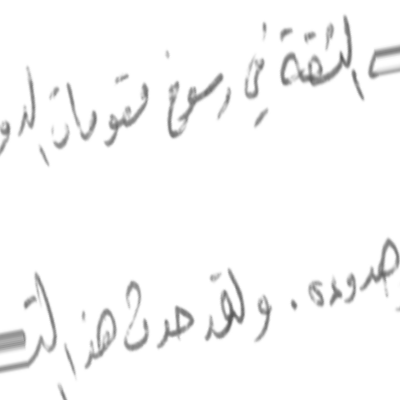 الثقة في رسوخ مقومات الدو
صدوده . ولقد حدث هذا الت